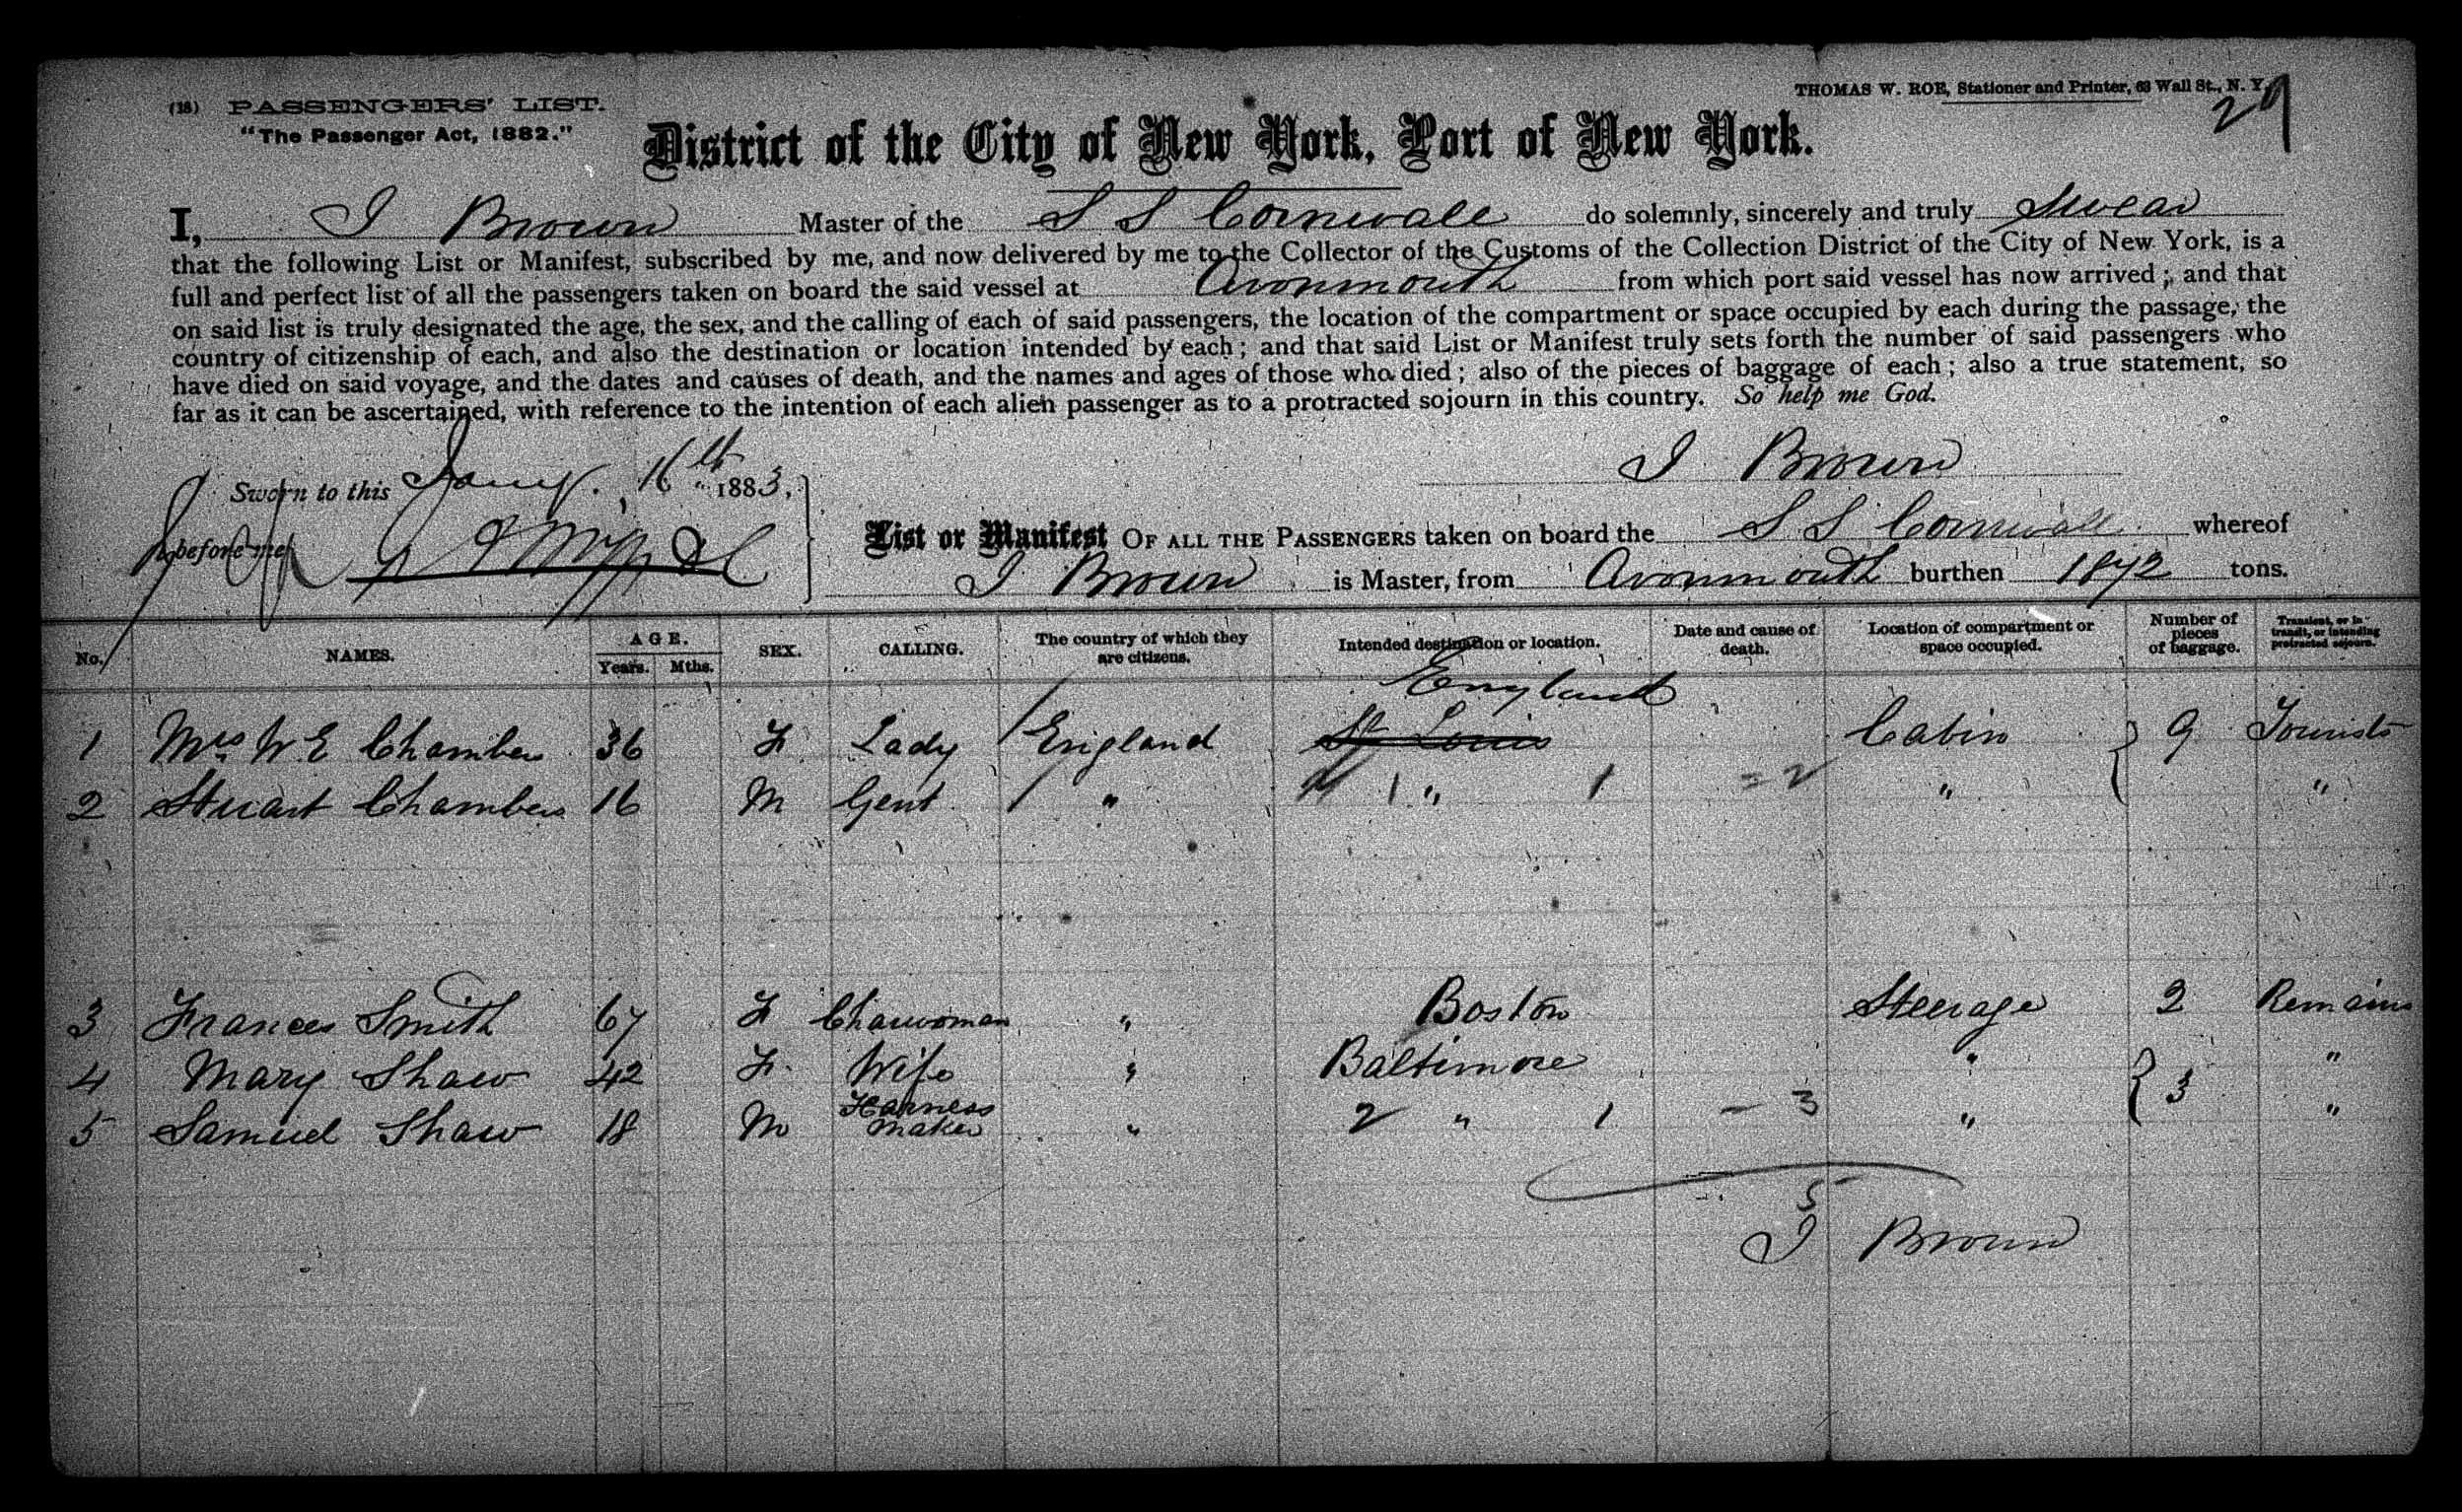 (18) PASSENGERS' LIST.
THOMAS W. ROE, Stationer and Printer, 63 Wall St., N. Y.
29
"The Passenger Act, 1882."
District of the City of New York, Port of New York.
I, J Brown Master of the S S Cornwall do solemnly, sincerely and truly Swear
that the following List or Manifest, subscribed by me, and now delivered by me to the Collector of the Customs of the Collection District of the City of New York, is a
full and perfect list of all the passengers taken on board the said vessel at Avonmouth from which port said vessel has now arrived; and that
on said list is truly designated the age, the sex, and the calling of each of said passengers, the location of the compartment or space occupied by each during the passage, the
country of citizenship of each, and also the destination or location intended by each; and that said List or Manifest truly sets forth the number of said passengers who
have died on said voyage, and the dates and causes of death, and the names and ages of those who died; also of the pieces of baggage of each; also a true statement, so
far as it can be ascertained, with reference to the intention of each alien passenger as to a protracted sojourn in this country. So help me God.
J Brown
Sworn to this Jany. 16th 1883,
before me
List or Manifest OF ALL THE PASSENGERS taken on board the S S Cornwall whereof
J Brown is Master, from Avonmouth burthen 1872 tons.
No. NAMES. AGE. Years. Mths. SEX. CALLING. The country of which they are citizens. Intended destination or location. Date and cause of death. Location of compartment or space occupied. Number of pieces of baggage. Transient, or in transit, or intending protracted sojourn.
England
1 Mrs W E Chambers 36 F Lady England St Louis Cabin 9 Tourists
2 Stuart Chambers 16 M Gent " 1 " 1 = 2 " "
3 Frances Smith 67 F Charwoman " Boston Steerage 2 Remains
4 Mary Shaw 42 F. Wife " Baltimore " 3 "
5 Samuel Shaw 18 M Harness maker " 2 " 1 - 3 " "
5
J Brown